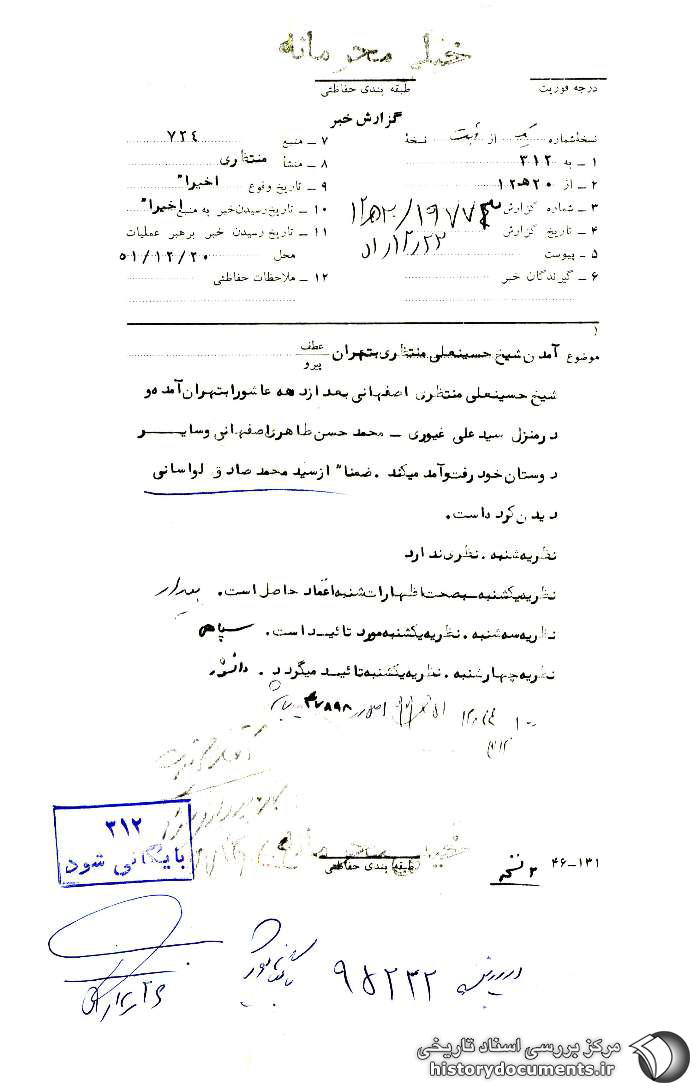 خیلی محرمانه
درجه فوریت
طبقه بندی حفاظتی
گزارش خبر
نسخهٔ شماره یک از نسخهٔ
۱ ـ به ۳۱۲
۲ ـ از ۲۰ ه‍ ۱۲
۳ ـ شماره گزارش ۱۲ه‍۲۰/۱۹۷۷۴
۴ ـ تاریخ گزارش ۵۱/۱۲/۲۳
۵ ـ پیوست
۶ ـ گیرندگان خبر
۷ ـ منبع ۷۲۴
۸ ـ منشأ منتظری
۹ ـ تاریخ وقوع اخیرا"
۱۰ ـ تاریخ رسیدن خبر به منبع اخیرا"
۱۱ ـ تاریخ رسیدن خبر برهبر عملیات
محل ۵۱/۱۲/۲۰
۱۲ ـ ملاحظات حفاظتی
موضوع آمدن شیخ حسینعلی منتظری بتهران عطف پیرو
شیخ حسینعلی منتظری اصفهانی بعد از دهه عاشورا بتهران آمده و
در منزل سید علی غیوری ـ محمد حسن طاهری اصفهانی و سایر
دوستان خود رفت و آمد میکند . ضمنا" از سید محمد صادق لواسانی
دیدن کرده است .
نظریه شنبه . نظری ندارد
نظریه یکشنبه ـ بصحت اظهارات شنبه اعتماد حاصل است . بیدار
نظریه سه شنبه . نظریه یکشنبه مورد تائید است . سپاهی
نظریه چهارشنبه . نظریه یکشنبه تائید میگردد . دانشور
۴۷۸۹۸
۳۱۲
بایگانی شود
خیلی محرمانه
طبقه بندی حفاظتی
۲ نسخه
۴۶-۱۳۱
۹۵۲۳۲
مرکز بررسی اسناد تاریخی
historydocuments.ir